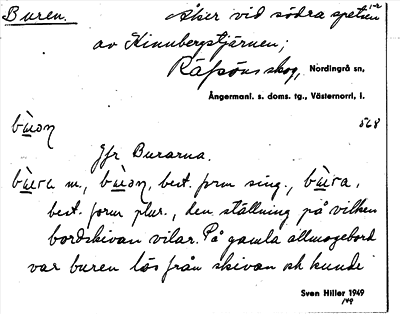 Buren. Åker vid södra spetsen 1-2
av Hinnbergstjärnen;
Räfsöns skog, Nordingrå sn,
Ångermanl. s. doms. tg., Västernorrl. l.
bùən 568
Jfr Burarna.
bùra m., bùən, best. form sing., bùra,
best. form plur., den ställning på vilken
bordskivan vilar. På gamla allmogebord
var buren lös från skivan och kunde
Sven Hiller 1949